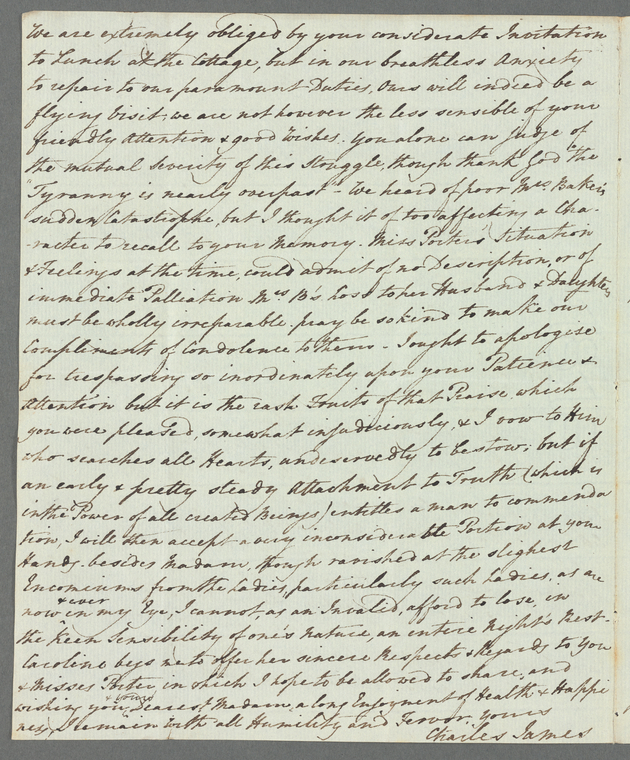 We are extremely obliged by your considerate Invitation
to Lunch at the Cottage, but in our breathless Anxiety
to repair to our paramount Duties, Ours will indeed be a
flying Visit; we are not however the less sensible of your
friendly Attention & good Wishes. You alone can judge of
the mutual Severity of this Struggle, though thank God "the
Tyranny is nearly overpast" - We heard of poor Mrs Baker's
sudden Catastrophe, but I thought it of too affecting a Cha-
-racter to recall to your Memory. Miss Porter's Situation
& Feelings at the time, could admit of no Description, or of
immediate Palliation Mrs B's loss to her Husband & Daughters
must be wholly irreparable. pray be so kind to make our
Compliments of Condolence to them - I ought to apologise
for trespassing so inordinately upon your Patience &
Attention but it is the rash Fruits of that Praise, which
you were pleased, somewhat injudiciously, & I vow to Him
who searches all Hearts, undeservedly to bestow; but if
an early & pretty steady Attachment to Truth (which is
in the Power of all created Beings) entitles a man to commenda
tion, I will then accept a very inconsiderable Portion at your
Hands. besides Madam, though ravished at the slightest
Encomiums from the Ladies, particularly such Ladies, as are
now & ever in my Eye, I cannot, as an Invalid, afford to lose, in
the keen Sensibility of one's Nature, an entire Night's Rest -
Caroline begs me to offer her sincere Respects & Regards to You
& Misses Porter, in which I hope to be allowed to share, and
wishing you, dearest Madam, a long Enjoyment of Health & Happi
ness, I remain with all Humility and Fervor, Yours
Charles James